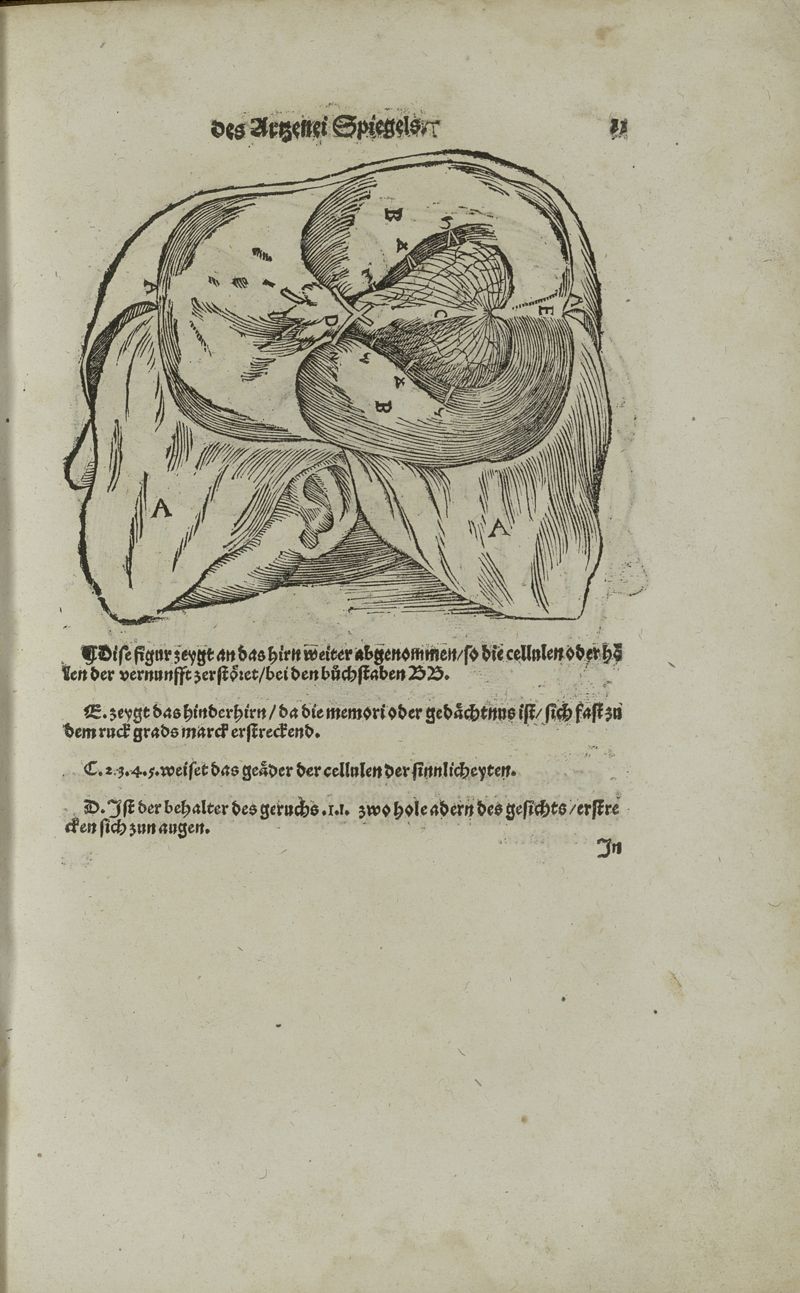 des Artzenei Spiegels.
B
5
4
3
A
A
D
C
E
3
4
5
B
A
A
¶Dise figur zeygt an das hirn weiter abgenommen/ so die cellulen oder hö
len der vernunfft zerstöret/ bei den bůchstaben BB.
E. zeygt das hinderhirn/ da die memori oder gedächtnus ist/ sich fast zů
dem ruck grads marck erstreckend.
C. 2. 3. 4. 5. weiset das geäder der cellulen der sinnlicheyten.
D. Ist der behalter des geruchs. 1. 1. zwo hole adern des gesichts/ erstre
cken sich zun augen.
In